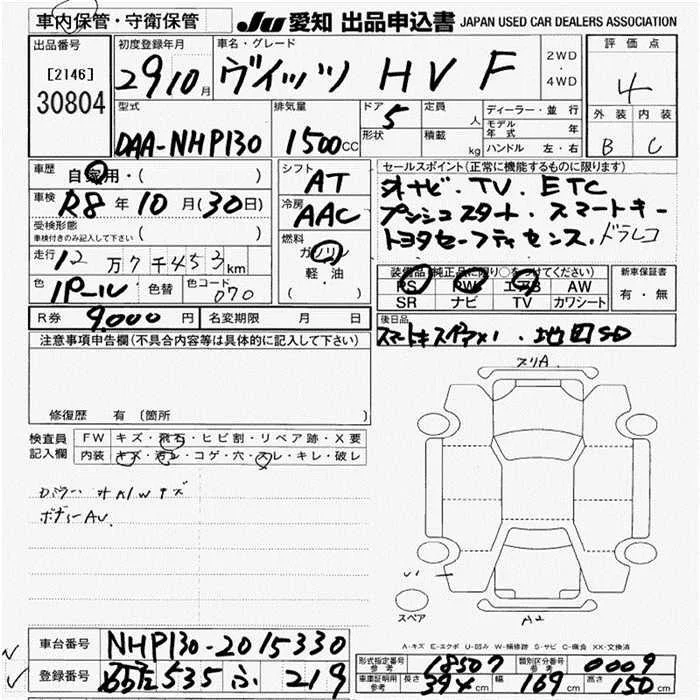 車内保管・守衛保管 JU 愛知 出品申込書 JAPAN USED CAR DEALERS ASSOCIATION
出品番号 [2146] 30804
初度登録年月 29 10月
車名・グレード ヴィッツ HV F
2WD・4WD
評価点 4
外装 B 内装 C
型式 DAA-NHP130
排気量 1500cc
ドア 5
形状
定員 人
積載 kg
ディーラー・並行
モデル年式 年
ハンドル 左・右
車歴 自家用・( )
車検 R8年10月(30日)
受検形態 車検付きのみ記入して下さい ( )
走行 12万7千453km
色 パール 色替 色コード 070
シフト AT
冷房 AAC
燃料 ガソリン 軽油 ( )
セールスポイント(正常に機能するものに限ります)
ナビ. TV. ETC
プッシュスタート. スマートキー
トヨタセーフティセンス. ドラレコ
装備品(純正品に限り○をつけてください)
PS PW エアB AW
SR ナビ TV カワシート
新車保証書 有・無
R券 9.000円 名変期限 月 日
後日品
スマートキースペア×1. 地図SD
注意事項申告欄(不具合内容等は具体的に記入して下さい)
修復歴 有 (箇所
検査員記入欄
FW キズ・飛石・ヒビ割・リペア跡・X要
内装 キズ・汚レ・コゲ・穴・スレ・キレ・破レ
ボディーAU
スリA
スペア
A2
A-キズ E-エクボ U-凹み W-補修跡 S-サビ C-腐食 XX-交換済
車台番号 NHP130-2015330
登録番号 535 ふ 219
形式指定番号 参考 18507
類別区分番号 参考 0009
車庫証明用 参考 長さ 394cm 幅 169cm 高さ 150cm